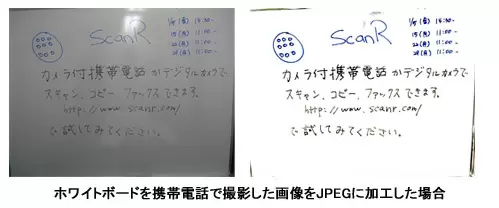 ScanR
1/8(金) 18:30-
15(月) 11:00-
22(月) 11:00-
29(月) 11:00-
カメラ付携帯電話かデジタルカメラで
スキャン、コピー、ファックスできます。
http://www.scanr.com/
で試してみてください。
ScanR
15(月) 11:00-
22(月) 11:00-
29(月) 11:00-
カメラ付携帯電話かデジタルカメラで
スキャン、コピー、ファックスできます。
http://www.scanr.com/
で試してみてください。
ホワイトボードを携帯電話で撮影した画像をJPEGに加工した場合